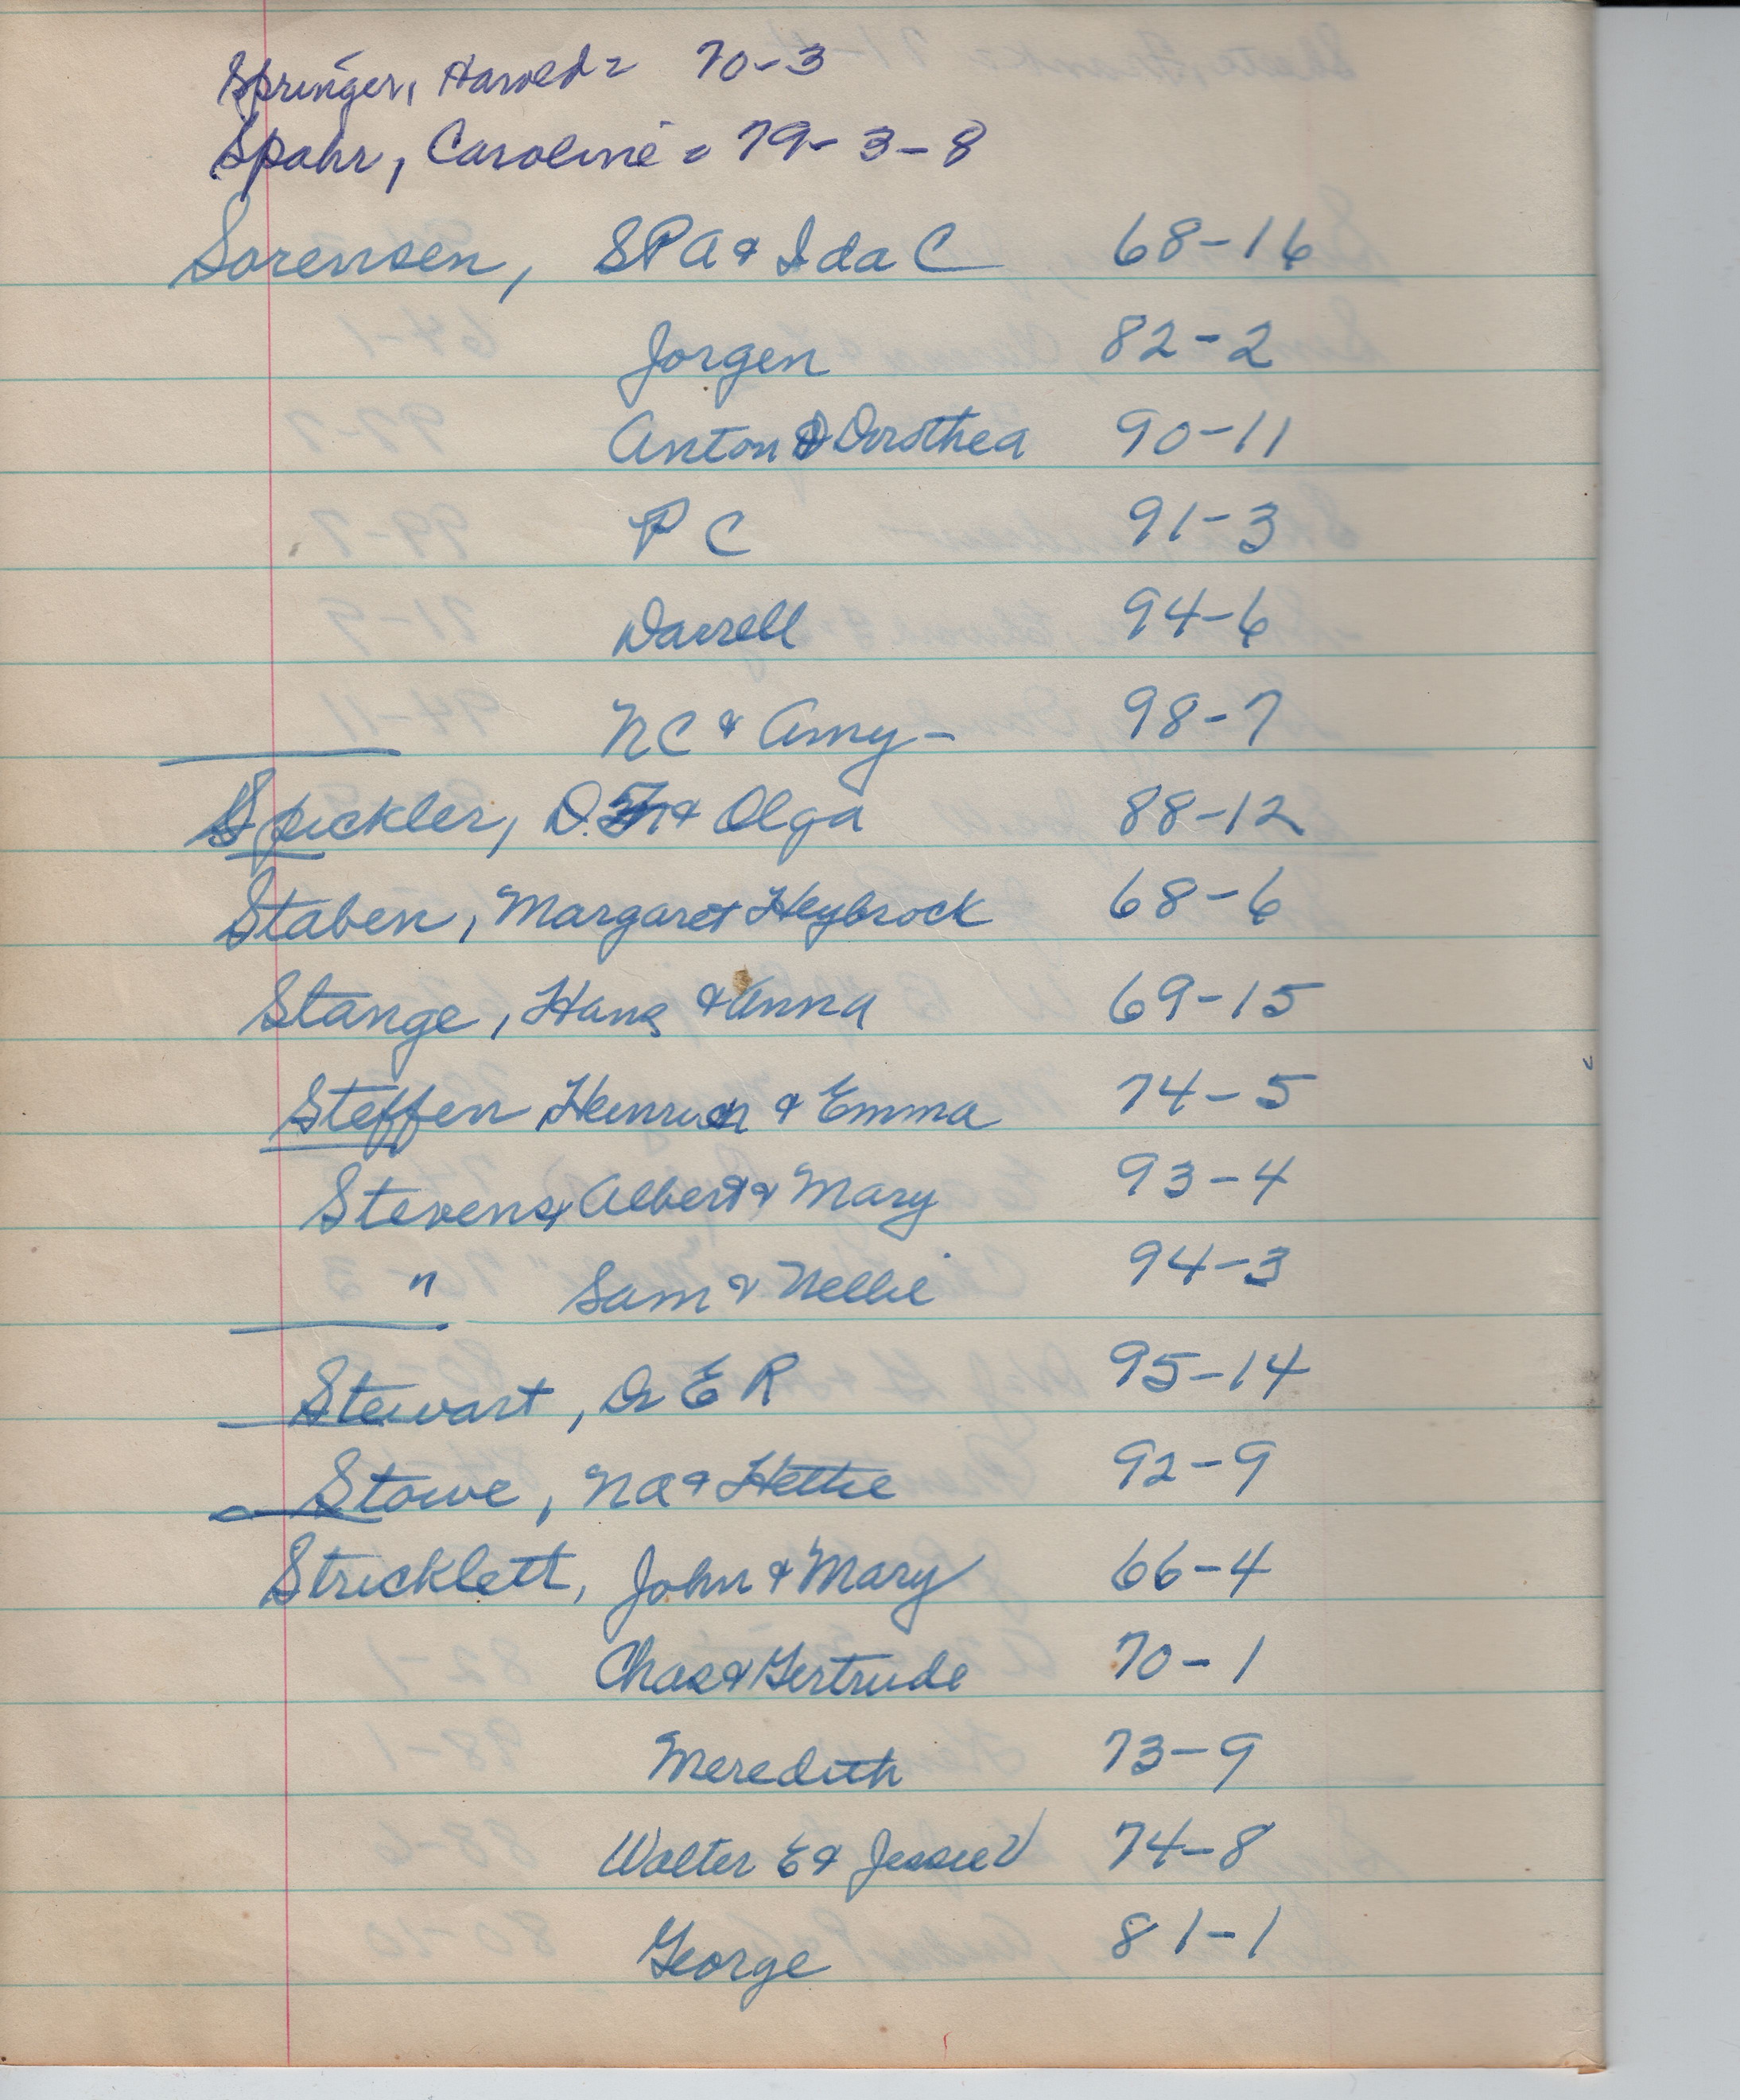 Springer, Harold = 70-3
Spahr, Caroline = 79-3-8
Sorensen, SPA & Ida C 68-16
Jorgen 82-2
Anton & Dorothea 90-11
P C 91-3
Darrell 94-6
NC & Amy - 98-7
Spickler, D. & Olga 88-12
Staben, Margaret Heybrock 68-6
Stange, Hans & Anna 69-15
Steffen Heinrich & Emma 74-5
Stevens, Albert & Mary 93-4
" Sam & Nellie 94-3
Stewart, Dr E R 95-14
Stowe, NA & Hettie 92-9
Stricklett, John & Mary 66-4
Chas & Gertrude 70-1
Meredith 73-9
Walter E & Jessie V 74-8
George 81-1